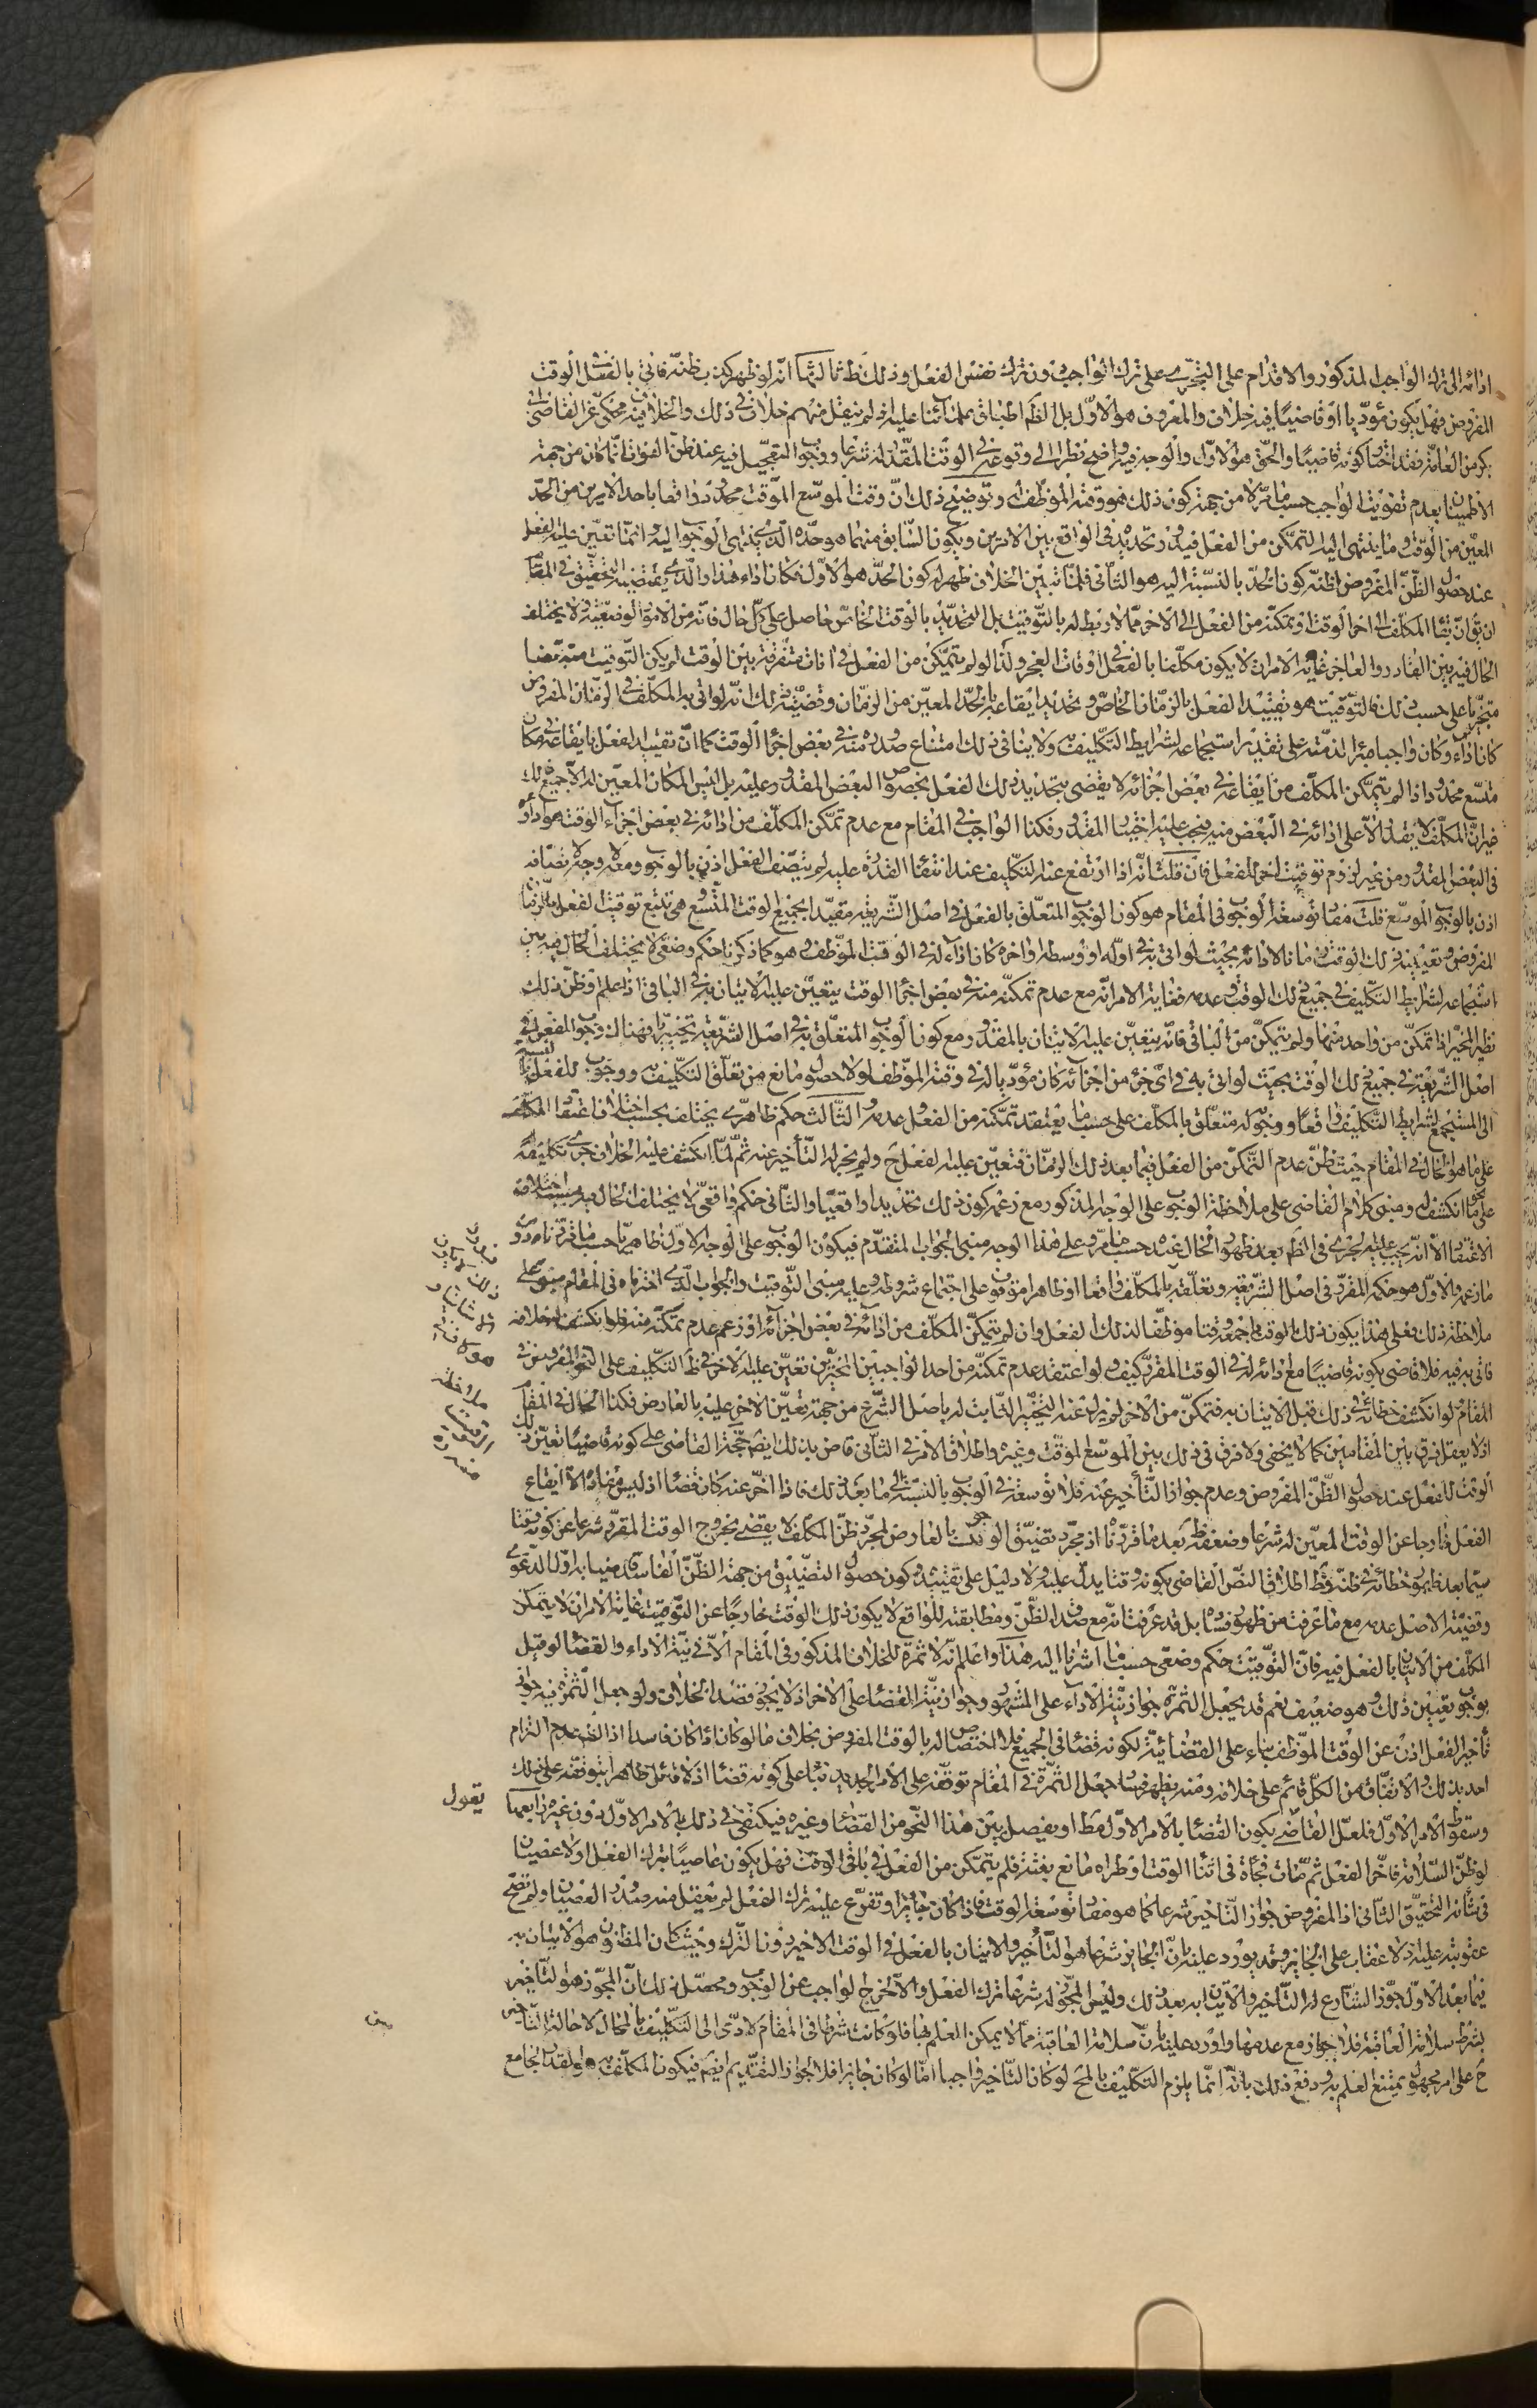 ادائه الى ترك الواجب المذكور والاقدام على التجرى على ترك الواجب دون ترك نفس الفعل وذلك ظ ثالثها انه لو ظهر كذب ظنه فاتى بالفعل الوقت
المفروض فهل يكون مؤديا او قاضيا فيه خلاف والمعروف هو الاول بل الظم اطباق علمائنا عليه اذ لم ينقل منهم خلاف فى ذلك والخلاف فيه محكى عن القاضى ابى
بكر من العامة فقد اختا كونه قاضيا والحق هو الاول والوجه فيه واضح نظرا الى وقوعه فى الوقت المقدر له شرعا ووجوب التعجيل فيه عند ظن الفوات انما كان من جهة
الاطمينان بعدم تفويت الواجب حسب ما مر لا من جهة كون ذلك هو وقته الموظف له وتوضيح ذلك ان وقت الموسع الموقت محدود واقعا باحد الامرين من الحد
المعين من الوقت وما ينتهى اليه التمكن من الفعل فيدور تحديده فى الواقع بين الامرين ويكون السابق منهما هو حده الذى ينتهى الوجوب اليه انما تعين عليه الفعل
عند حصول الظن المفروض لظنه كون الحد بالنسبة اليه هو الثانى فلما تبين الخلاف ظهر له كون الحد هو الاول فكان اداء هذا والذى يقتضيه التحقيق فى المقام
ان يق ان بقاء المكلف الى اخر الوقت او تمكنه من الفعل الى الاخر مما لا ربط له بالتوقيت بل التحديد بالوقت الخاص حاصل على كل حال فانه من الامور الوضعية ولا يختلف
الحال فيه بين القادر والعاجز غاية الامر ان لا يكون مكلفا بالفعل فى اوقات العجز ولذا لو لم يتمكن من الفعل فى انات متفرقة بين الوقت لم يكن التوقيت متبعضا
متجزيا على حسب ذلك فالتوقيت هو تقييد الفعل بالزمان الخاص وتحديد ايقاعه بالحد المعين من الزمان وقضية ذلك انه لو اتى به المكلف فى الزمان المفروض
كان اداء وكان واجبا مبرا لذمته على تقدير استجماعه لشرايط التكليف ولا ينافى ذلك امتناع صدوره منه فى بعض اجزاء الوقت كما ان تقييد الفعل بايقاعه فى مكان
متسع محدود اذا لم يتمكن المكلف من ايقاعه فى بعض اجزائه لا يقضى بتحديد ذلك الفعل بخصوص البعض المقدور وعليه بل ليس المكان المعين له الا جميع ذلك
غير ان المكلف لا يقدر الا على ادائه فى البعض منه فيجب عليه اختيار المقدور فكذا الواجب فى المقام مع عدم تمكن المكلف من ادائه فى بعض اجزاء الوقت هو اداؤه
فى البعض المقدور من غير لزوم توقيت اخر للفعل فان قلت انه اذا ارتفع عنه التكليف عند انتفاء القدرة عليه لم يتصف الفعل اذن بالوجوب ومعه لا وجه لاتصافه
اذن بالوجوب الموسع قلت مفاد توسعة الوجوب فى المقام هو كون الوجوب المتعلق بالفعل فى اصل الشريعة مقيدا بجميع الوقت المتسع وهى تتبع توقيت الفعل بالزمان
المفروض وتعيينه ذلك الوقت زمانا لادائه بحيث لو اتى به فى اوله او وسطه او اخره كان اداء له فى الوقت الموظف وهو كما ذكرنا حكم وضعى لا يختلف الحال فيه بين
استجماعه لشرايط التكليف فى جميع ذلك الوقت وعدمه فغاية الامر انه مع عدم تمكنه منه فى بعض اجزاء الوقت يتعين عليه الاتيان به فى الباقى اذا علم او ظن ذلك
نظير المخير اذا تمكن من واحد منهما ولم يتمكن من الباقى فانه يتعين عليه الاتيان بالمقدور مع كون الوجوب المتعلق به فى اصل الشريعة تخييريا فهنالك وجوب للفعل فى
اصل الشريعة فى جميع ذلك الوقت بحيث لو اتى به فى اى جزء من اجزائه كان مؤديا له فى وقته الموظف او لا حصول مانع من تعلق التكليف ووجوب للفعل بالنسبة
الى المستجمع لشرايط التكليف واقعا ووجوب له متعلق بالمكلف على حسب ما يعتقد تمكنه من الفعل وعدمه والثالث حكم ظاهرى يختلف بحسب اختلاف اعتقاد المكلف
على ما هو الحال فى المقام حيث ظن عدم التمكن من الفعل فيما بعد ذلك الزمان فتعين عليه الفعل ح ولم يجز له التأخير عنه ثم لما انكشف عليه الخلاف جرى تكليفه
على نحو ما انكشف له ومبنى كلام القاضى على ملاحظة الوجوب على الوجه المذكور مع زعمه كون ذلك تحديدا واقعيا والثانى حكم واقعى لا يختلف الحال فيه بحسب اختلاف
الاعتقاد الا انه يجب عليه الجرى فى الظم بعد ظهور الحال عنده حسب ما مر وعلى هذا الوجه مبنى الجواب المتقدم فيكون الوجوب على الوجه الاول ظاهريا حسب ما قررناه دون
ما زعمه والاول هو حكمه المقرر فى اصل الشريعة وتعلقه بالمكلف واقعا او ظاهرا موقوف على اجتماع شروطه وعليه مبنى التوقيت والجواب الذى اخترناه فى المقام مبنى على
ملاحظة ذلك فعلى هذا يكون ذلك الوقت باجمعه وقتا موظفا لذلك الفعل وان لم يتمكن المكلف من ادائه فى بعض اجزائه او زعم عدم تمكنه منه فلو انكشف له خلافه
فاتى به فيه فلا قاضى بكونه قاضيا مع ادائه له فى الوقت المقرر كيف ولو اعتقد عدم تمكنه من احد الواجبين المخيرين تعين عليه الاخر فى ظ التكليف على النحو المفروض فى
المقام لو انكشف خطائه فى ذلك قبل الاتيان به فتمكن من الاخر لم يزل عنه التخيير الثابت له باصل الشرع من جهة تعين الاخر عليه بالعارض فكذا الحال فى المقام
اذ لا يعقل فرق بين المقامين كما لا يخفى ولا فرق فى ذلك بين الموسع الموقت وغيره واطلاق الامر فى الثانى قاض بذلك ايضا حجة القاضى على كونه قاضيا تعين ذلك
الوقت للفعل عند حصول الظن المفروض وعدم جواز التأخير عنه فلا توسعة فى الوجوب بالنسبة الى ما بعد ذلك فاذا اخر عنه كان قضاء اذ ليس مفاده الا ايقاع
الفعل خارجا عن الوقت المعين له شرعا وضعفه ظ بعد ما قررناه اذ مجرد تضيق الوجوب بالعارض لمجرد ظن المكلف لا يقضى بخروج الوقت المقرر شرعا عن كونه وقتا
سيما بعد ظهور خطائه فى ظنه وقط اطلاق النص القاضى بكونه وقتا يدل عليه ولا دليل على تقييده وكون حصول التضييق من جهة الظن الفاسد قاضيا به اول الدعوى
وقضية الاصل عدمه مع ما عرفت من ظهور فساده بل قد عرفت انه مع صدق الظن ومطابقته للواقع لا يكون ذلك الوقت خارجا عن التوقيت غاية الامر ان لا يتمكن
المكلف من الاتيان بالفعل فيه فان التوقيت حكم وضعى حسب ما اشرنا اليه هذا واعلم انه لا ثمرة للخلاف المذكور فى المقام الا فى نية الاداء والقضاء لو قيل
بوجوب تعيين ذلك وهو ضعيف نعم قد يجعل الثمرة جواز نية الاداء على المشهور وجواز نية القضاء على الاخر اذ لا يجوز قصد الخلاف ولو جعل الثمرة فيه جواز
تأخير الفعل اذن عن الوقت الموظف بناء على القضائية لكونه قضاء فى الجميع فلا اختصاص له بالوقت المفروض بخلاف ما لو كان اداء كان فاسدا اذ الظم عدم التزام
احد بذلك والاتفاق من الكل قائم على خلافه ومنه يظهر فساد جعل الثمرة فى المقام توقفه على الامر الجديد بناء على كونه قضاء اذ لا قائل ظاهرا بتوقفه على ذلك
وسقوط الامر الاول فلعل القاضى يكون القضاء بالامر الاول مط او يفصل بين هذا النحو من القضاء وغيره فيكتفى فى ذلك بالامر الاول دون غيره رابعها
لو ظن السلامة فاخر الفعل ثم مات فجأة فى اثناء الوقت او طراه مانع بغتة فلم يتمكن من الفعل فى باقى الوقت فهل يكون عاصيا بترك الفعل او لا عصيان
فى شانه التحقيق الثانى اذ المفروض جواز التاخير شرعا كما هو مفاد توسعة الوقت فاذا كان جايزا وتفرع عليه ترك الفعل لم يعقل منه صدور العصيان ولم تصح
عقوبته عليه اذ لا عقاب على الجايز وقد يورد عليه بان الجايز شرعا هو التأخير والاتيان بالفعل فى الوقت الاخير دون الترك وحيث كان المظنون هو الاتيان به
فيما بعد الاول جوز الشارع له التأخير والاتيان به بعد ذلك وليس المجوز له شرعا ترك الفعل والا لخرج الواجب عن الوجوب ومحصل ذلك ان المجوز هو التأخير
بشرط سلامة العاقبة فلا جواز مع عدمها واورد عليه بان سلامة العاقبة مما لا يمكن العلم بها فلو كانت شرطا فى المقام لادى الى التكليف بالمحال لاحالة التأخير
ح على امر مجهول يمتنع العلم به ودفع ذلك بانه انما يلزم التكليف بالمح لو كان التأخير واجبا اما لو كان جايزا فلا لجواز التقديم ايضا فيكون المكلف به هو القدر الجامع
ملاحظة
التوقيت
منه ره
يقول